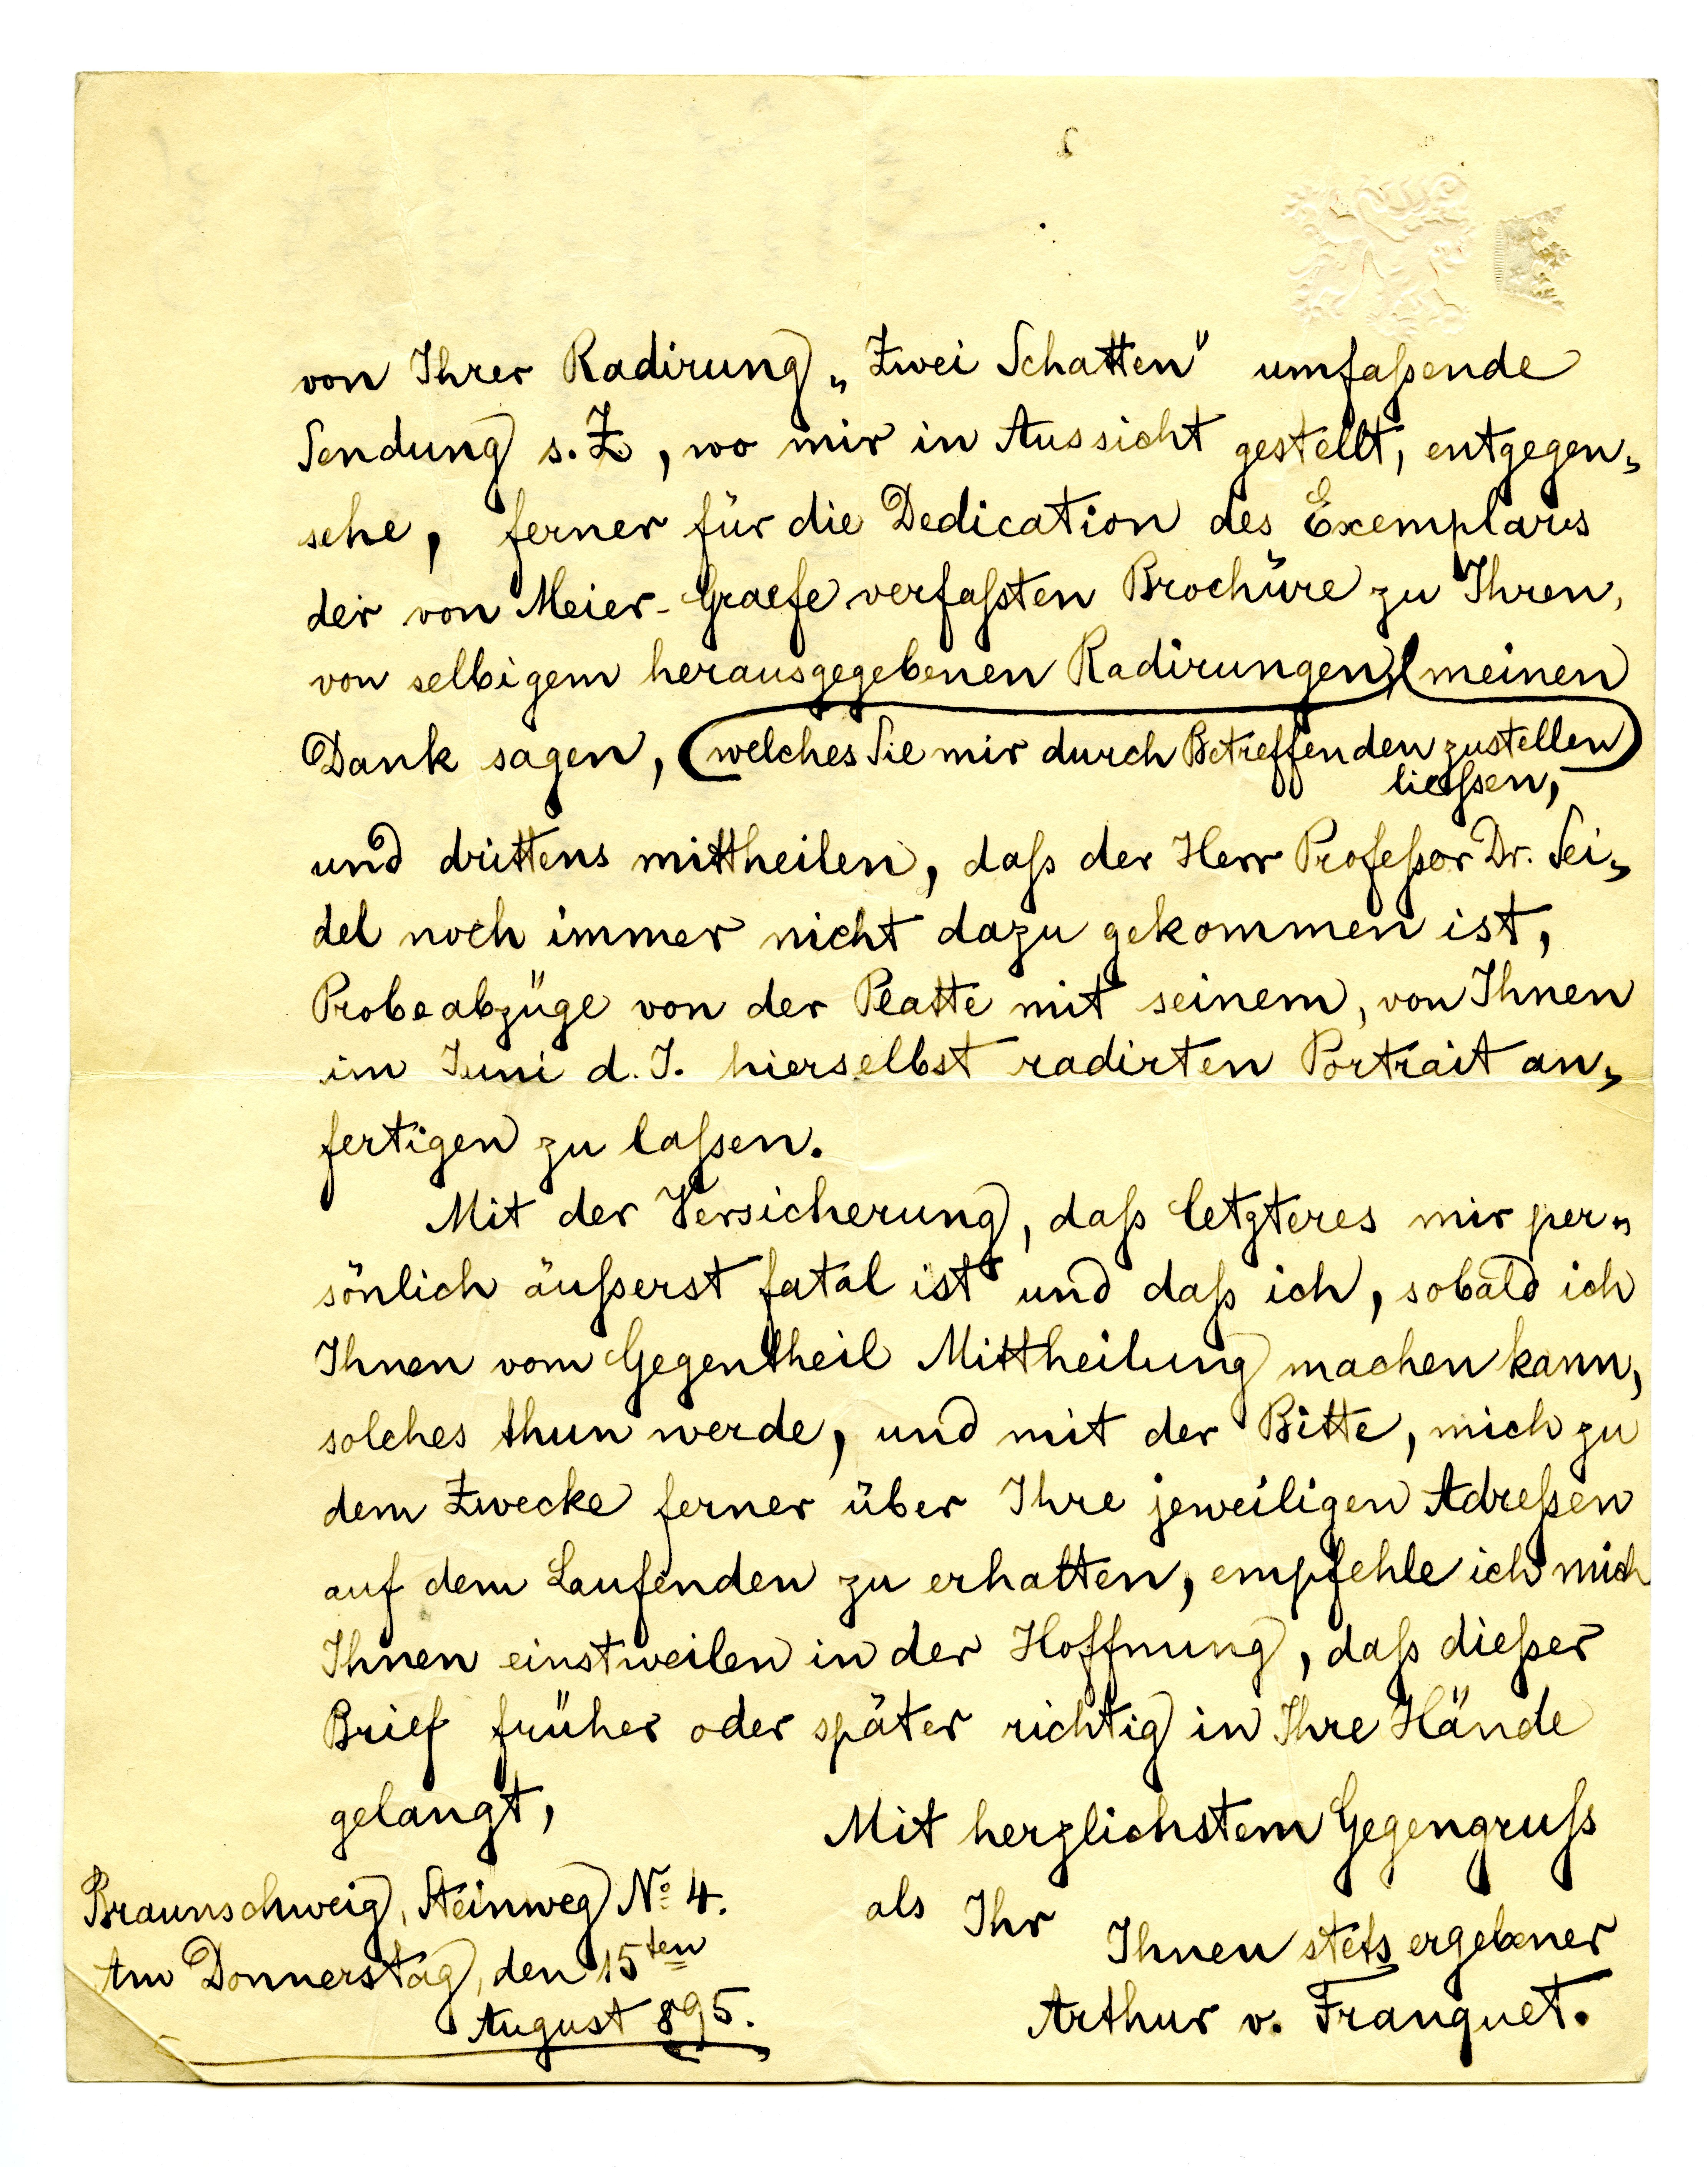 von Ihrer Radirung „Zwei Schatten" umfaßende
Sendung s. Z, wo mir in Aussicht gestellt, entgegen„
sehe, ferner für die Dedication des Exemplars
der von Meier-Graefe verfaßten Brochüre zu Ihren,
von selbigem herausgegebenen Radirungen, meinen
Dank sagen, (welches Sie mir durch Betreffenden zustellen
ließsen,
und drittens mittheilen, daß der Herr Profeßor Dr. Sei„
del noch immer nicht dazu gekommen ist,
Probeabzüge von der Platte mit seinem, von Ihnen
im Juni d. J. hierselbst radirten Portrait an„
fertigen zu laßen.
Mit der Versicherung, daß letzteres mir per„
sönlich äußerst fatal ist und daß ich, sobald ich
Ihnen vom Gegentheil Mittheilung machen kann,
solches thun werde, und mit der Bitte, mich zu
dem Zwecke ferner über Ihre jeweiligen Adreßen
auf dem Laufenden zu erhalten, empfehle ich mich
Ihnen einstweilen in der Hoffnung, daß dießer
Brief früher oder später richtig in Ihre Hände
gelangt,
Mit herzlichstem Gegengruß
als Ihr
Ihnen stets ergebener
Arthur v. Franquet.
Braunschweig, Steinweg No 4.
Am Donnerstag, den 15ten
August 895.